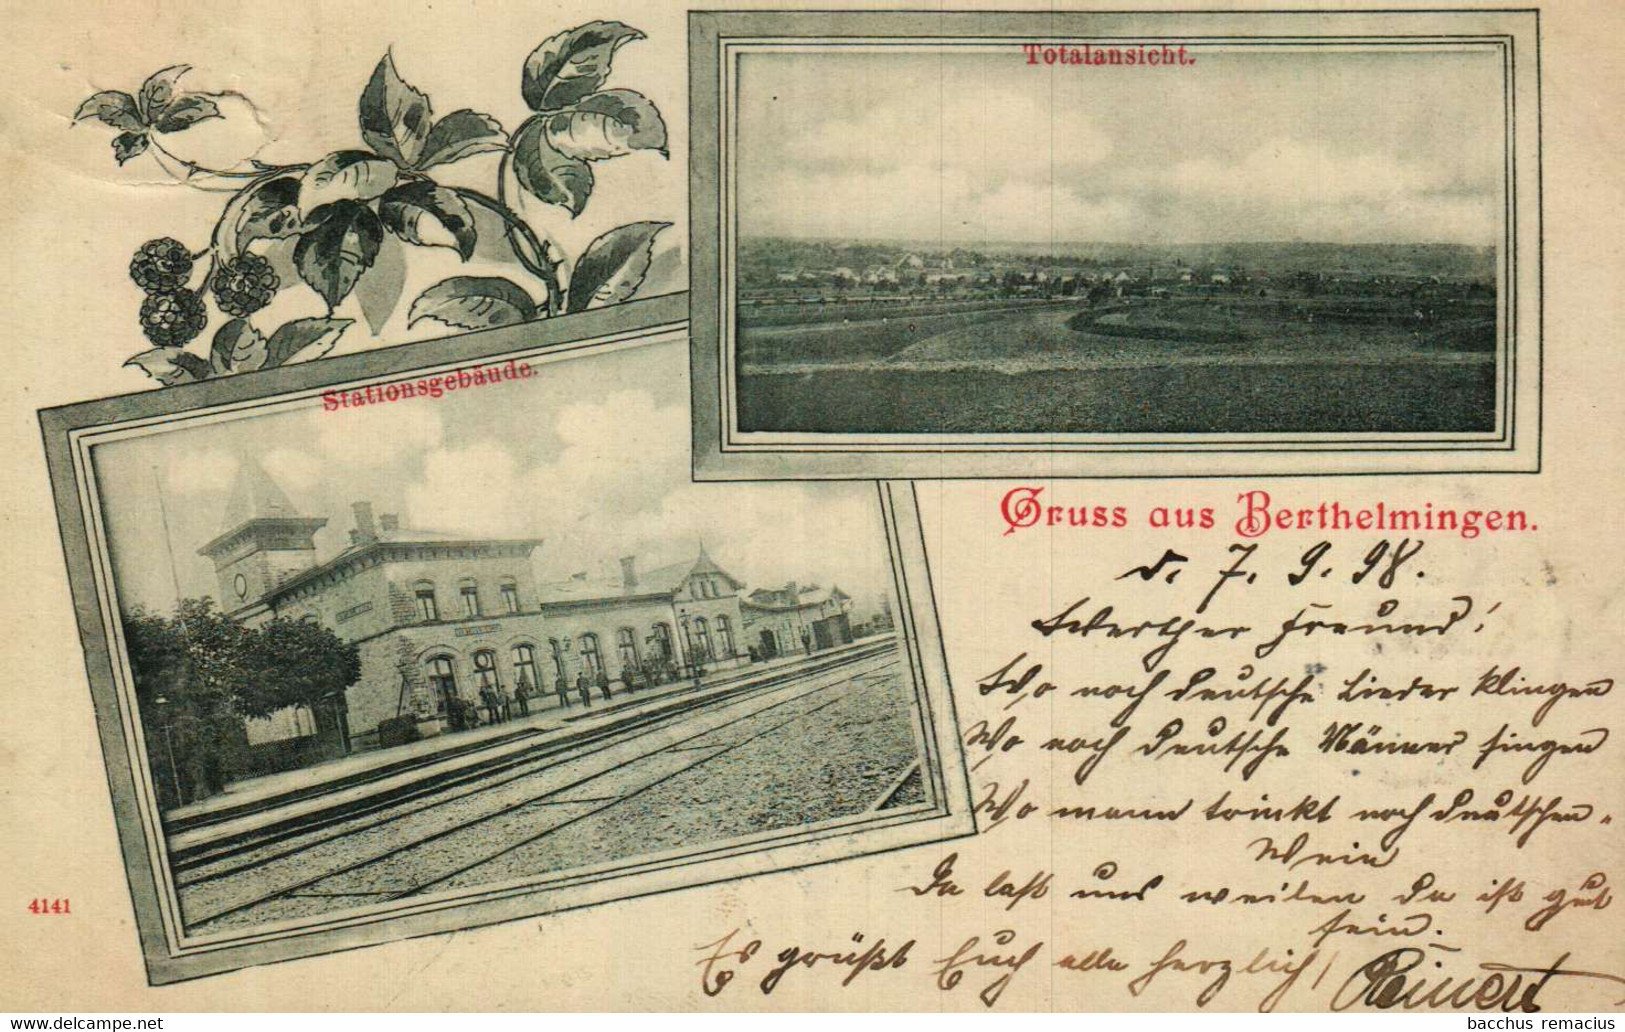 Totalansicht.
Stationsgebäude.
Gruss aus Berthelmingen.
d. 7. 9. 98.
Werther Freund!
Wo noch deutsche Lieder klingen
Wo noch deutsche Männer singen
Wo mann trinkt noch deutschen
Wein
Da laßt uns weilen da ist gut
sein.
Es grüßt Euch alle herzlich!
Reinert
4141
bacchus remacius